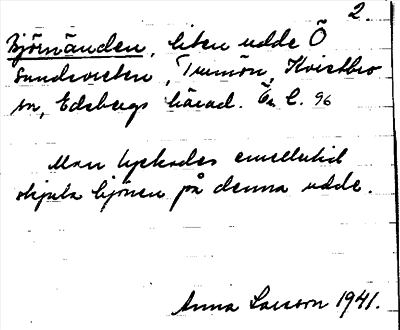 2.
Björnänden, liten udde Ö
Sundsviken, Trumön, Kvistbro
sn, Edsbergs härad. Ör. l. 96
Man lyckades emellertid
skjuta björnen på denna udde.
Anna Larsson 1941.